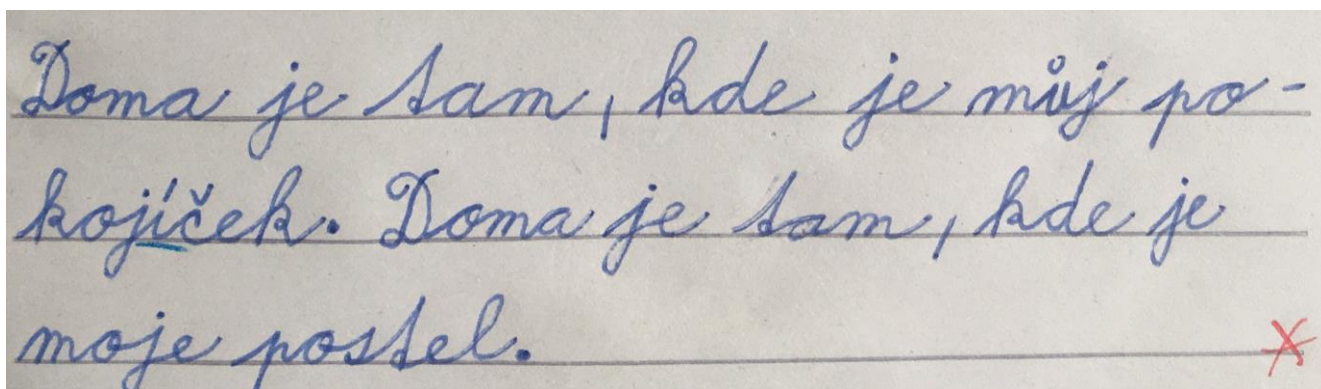 Doma je tam, kde je můj po-
kojíček. Doma je tam, kde je
moje postel.